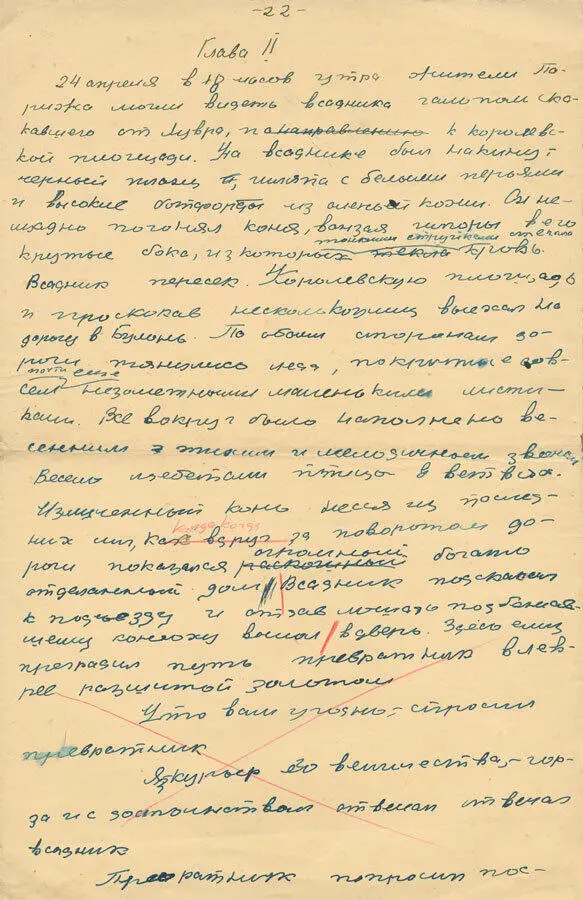 -22-
Глава II
24 апреля в 10 часов утра жители Па-
рижа могли видеть всадника галопом ска-
кавшего от Лувра, по направлению к королевс-
кой площади. На всаднике был накинут
черный плащ, шляпа с белыми перьями
и высокие ботфорты из оленьей кожи. Он не-
щадно погонял коня, вонзая шпоры в его
тонкими струйками стекала
крутые бока, из которых текла кровь.
Всадник пересек Королевскую площадь
и проскакав несколько улиц выехал на
дорогу в Булонь. По обоим сторонам до-
роги тянулись леса, покрытые сов-
почти еще
сем незаметными маленькими листи-
ками. Все вокруг было наполнено ве-
сенним и мелодичным звоном
Весело щебетали птицы в ветвях.
Измученный конь несся из послед-
когда когда
них сил, как вдруг за поворотом до-
огромный
роги показался роскошный богато
отделанный дом Всадник подскакал
к подъезду и отдав лошадь подбежав-
шему конюху вошел в дверь. Здесь ему
преградил путь превратник в лев-
рее расшитой золотом
Что вам угодно, - спросил
превратник
Я курьер его величества, - гор-
до и с достоинством отвечал отвечал
всадник
Превратник попросил пос-